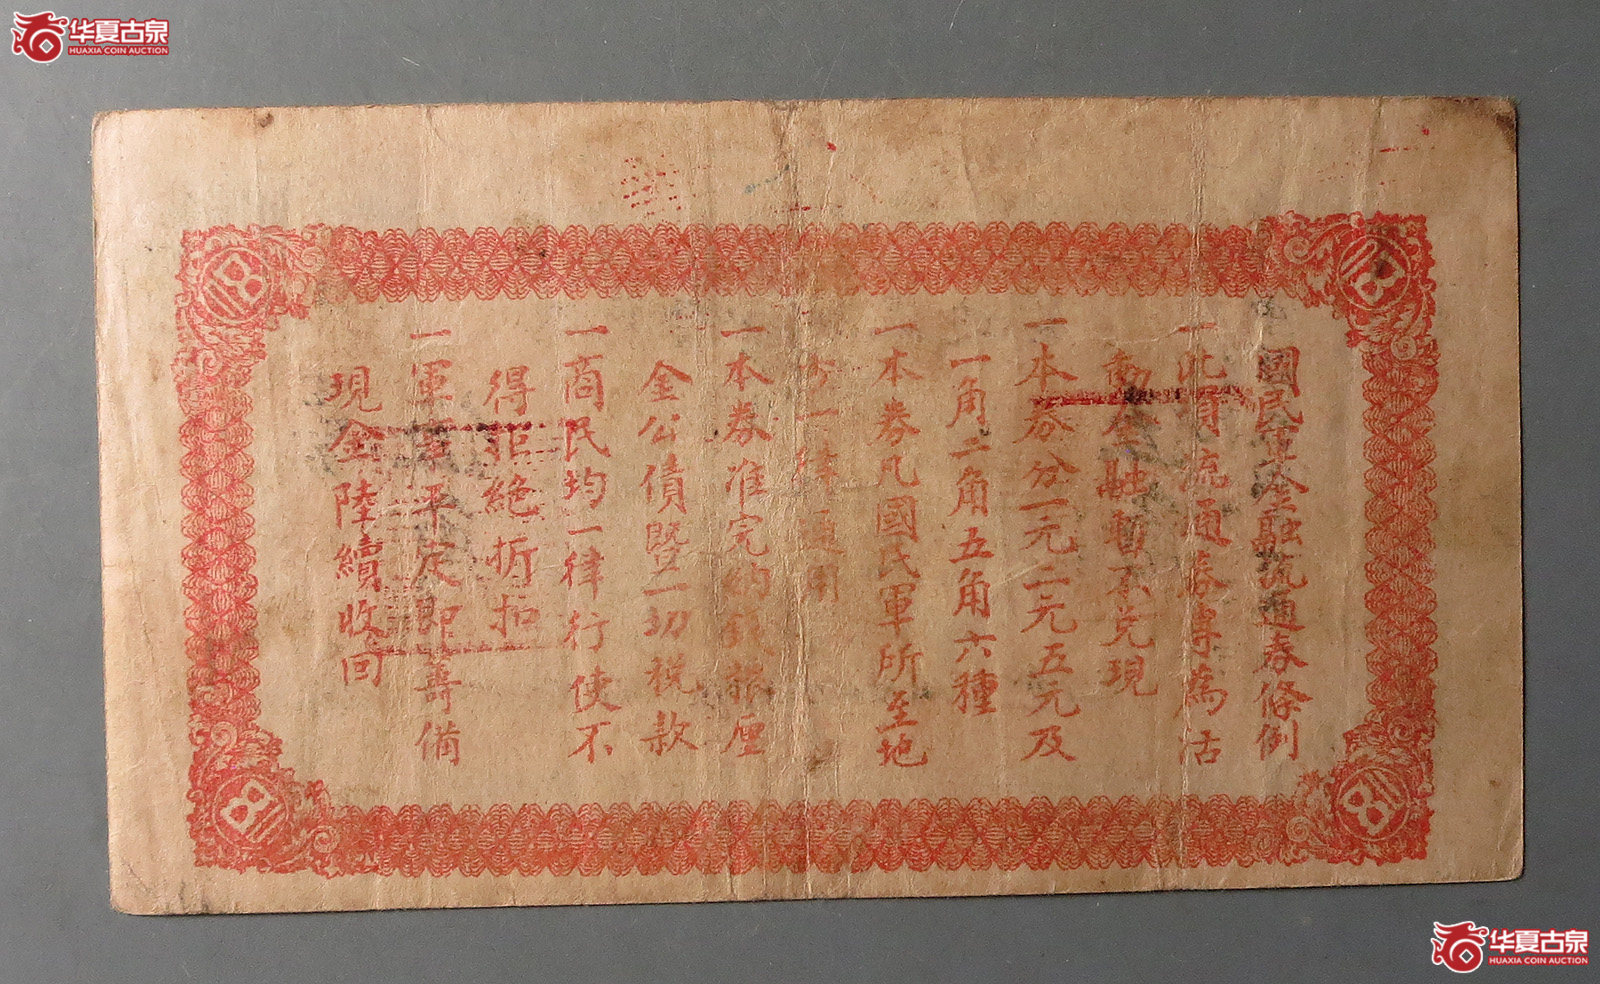 华夏古泉
HUAXIA COIN AUCTION
國民軍金融流通券條例
一此項流通券專為活
動金融暫不兌現
一本券分一元二元五元及
一角二角五角六種
一本券凡國民軍所至地
方一律通用
一本券准完納錢糧厘
金公債暨一切税款
一商民均一律行使不
得拒絕折扣
一軍事平定即籌備
現金陸續收回
华夏古泉
HUAXIA COIN AUCTION